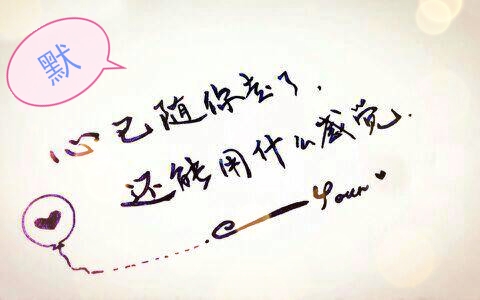 默
心已随你去了.
还能用什么感觉.
Your